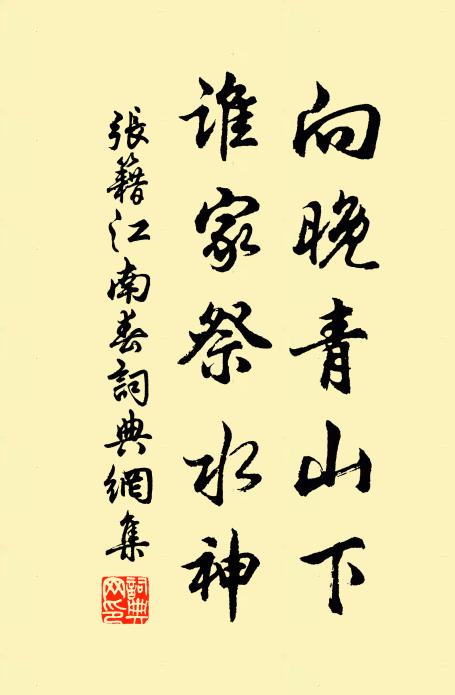 向晚青山下
誰家祭水神
張籍江南春詞典網集
詞典網印